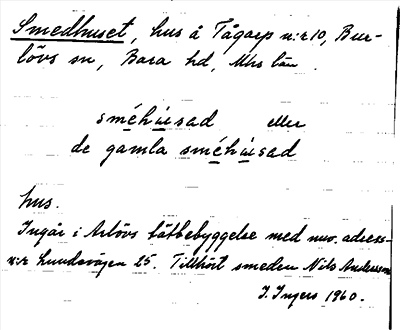 Smedhuset, hus å Tågarp n:r 10, Bur-
lövs sn, Bara hd, Mhs län.
sméhúsad eller
de gamla sméhúsad
hus.
Ingår i Arlövs tätbebyggelse med nuv. adress-
n:r Lundavägen 25. Tillhört smeden Nils Andersson
I. Ingers 1960.